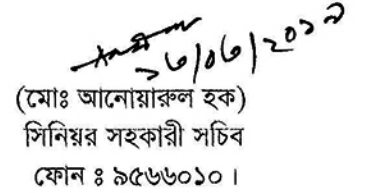 ১৬/০৬/২০১৯
(মোঃ আনোয়ারুল হক)
সিনিয়র সহকারী সচিব
ফোন ঃ ৯৫৬৬০১০।